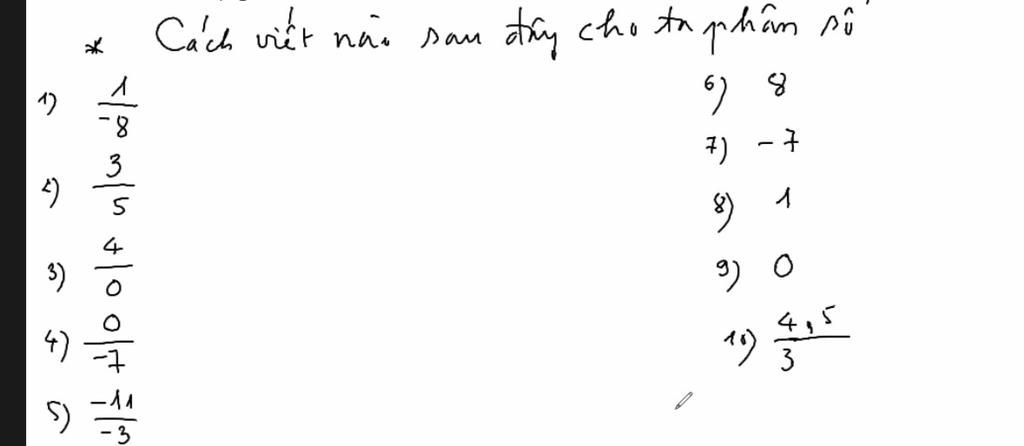 * Cách viết nào sau đây cho ta phân số
1) 1/-8
2) 3/5
3) 4/0
4) 0/-7
5) -11/-3
6) 8
7) -7
8) 1
9) 0
10) 4,5/3